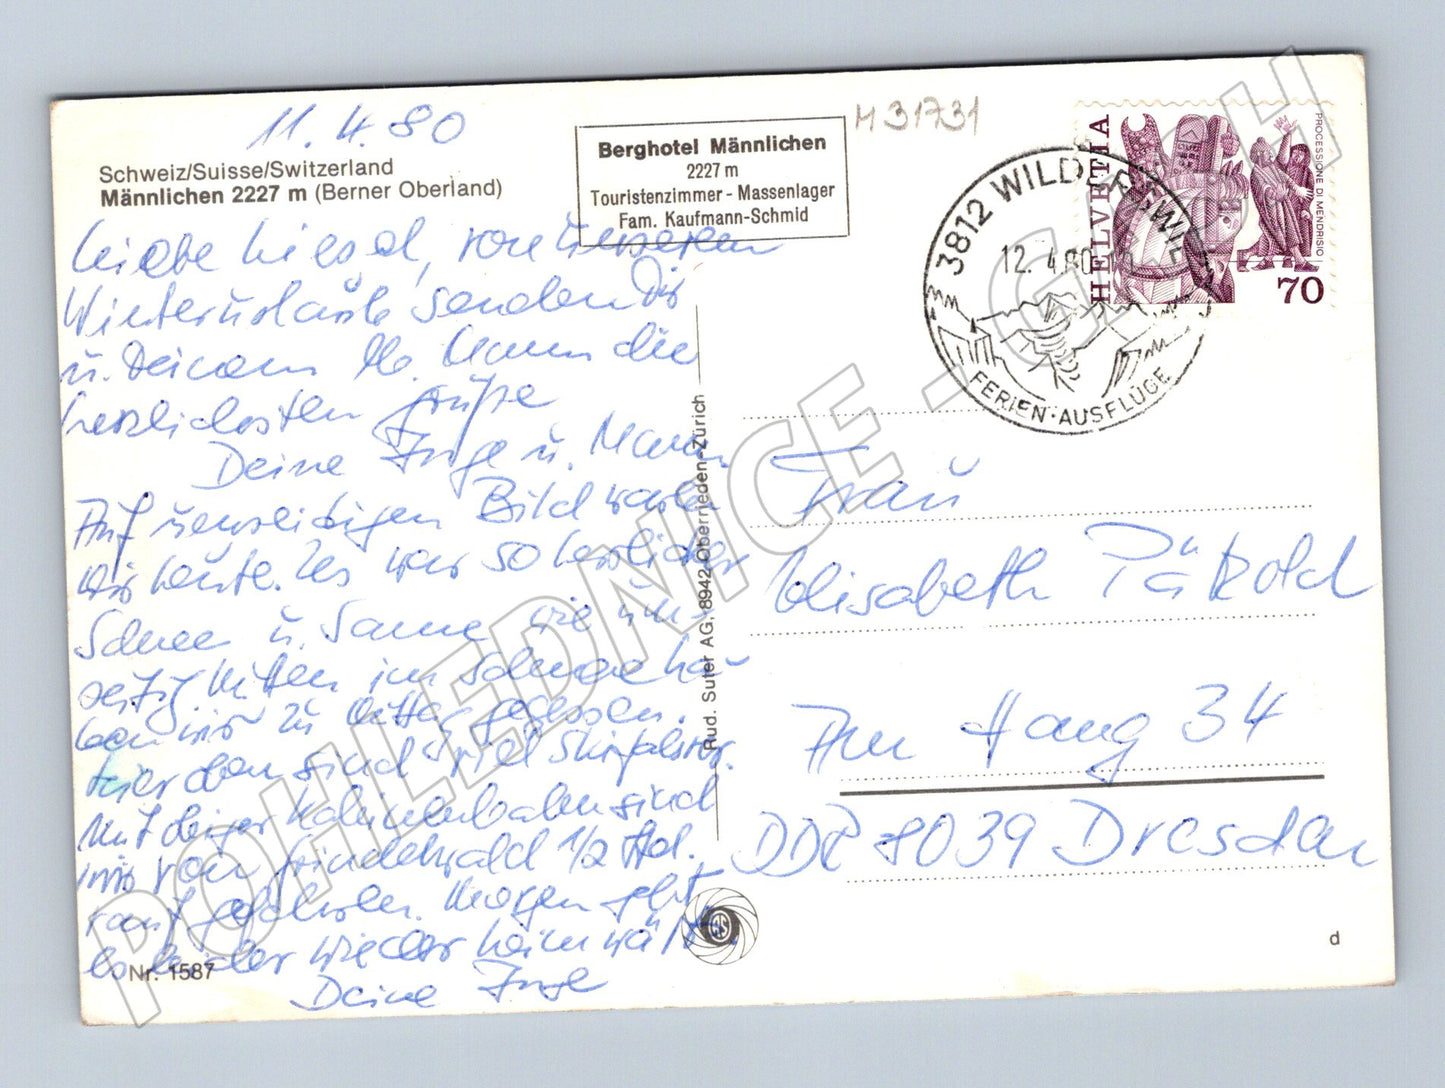 11.4.80
Schweiz/Suisse/Switzerland
Männlichen 2227 m (Berner Oberland)
Berghotel Männlichen
2227 m
Touristenzimmer - Massenlager
Fam. Kaufmann-Schmid
M 31731
3812 WILDERSWIL
12.4.80
FERIEN·AUSFLÜGE
HELVETIA
PROCESSIONE DI MENDRISIO
70
Liebe Liesel, von unserem
Winterurlaub senden Dir
u. Deinem Mann die
herzlichsten Grüße
Deine Inge u. Mann
Auf umseitigen Bild waren
wir heute. Es war so herrlicher
Schnee u. Sonne wie um-
seitig. Mitten im Schnee ha-
ben wir zu Mittag gegessen.
Hier oben sind viel Skifahrer.
Mit einer Kabinenbahn sind
wir von Grindelwald 1/2 Std.
rauf gefahren. Morgen geht
es leider wieder heimwärts.
Deine Inge
Nr. 1587
Rud. Suter AG, 8942 Oberrieden-Zürich
RS
Frau
Elisabeth Pätzold
Am Hang 34
DDR 8039 Dresden
d
POHLEDNICE - GASH